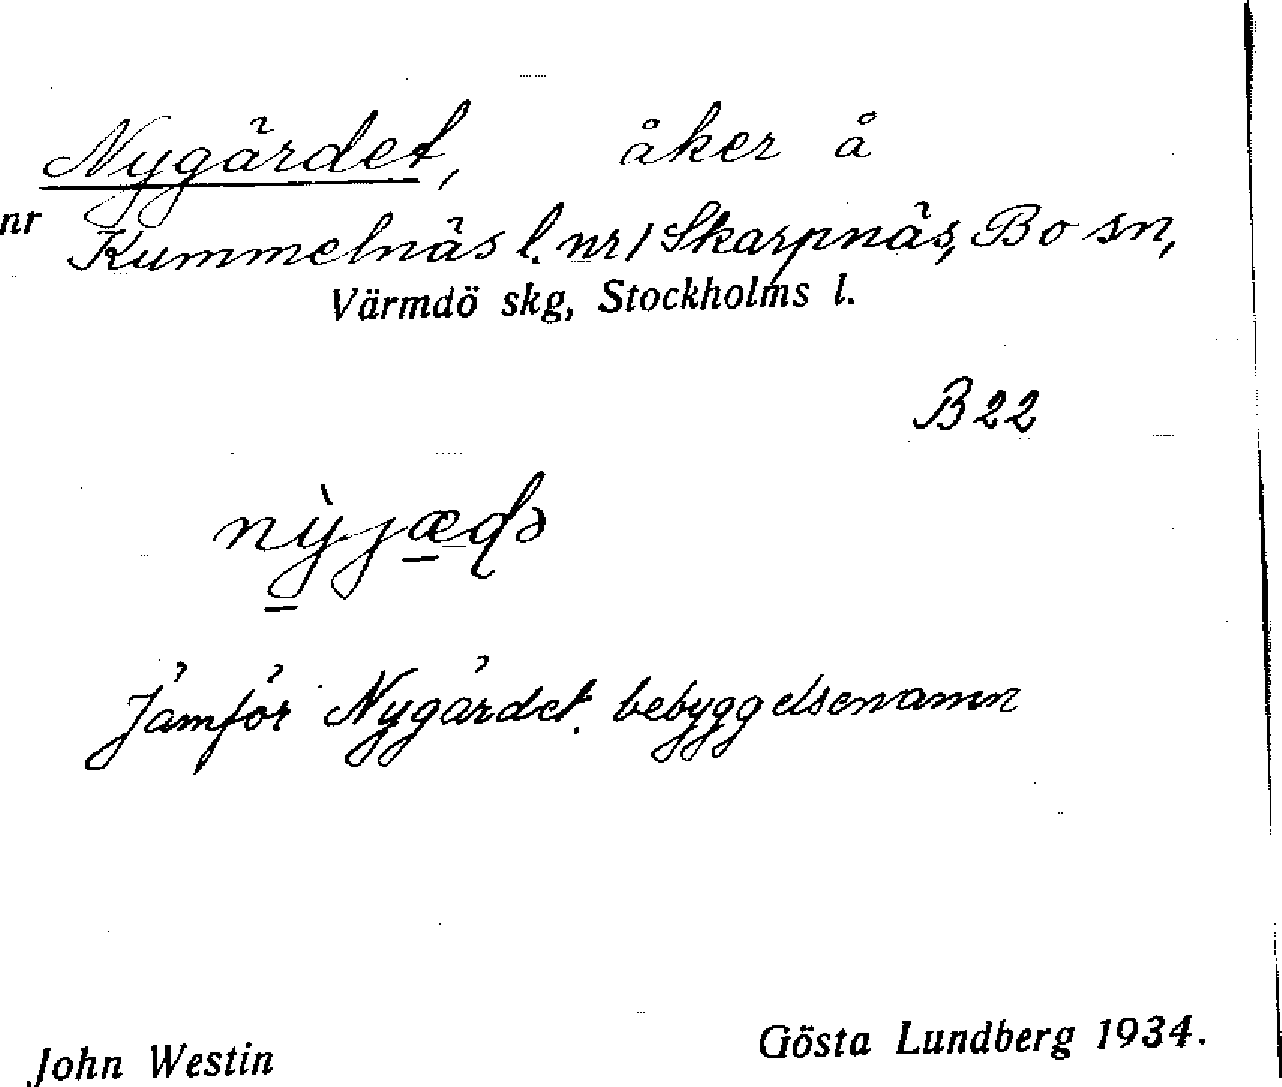 Nygärdet, åker å
nr Kummelnäs l. nr 1 Skarpnäs, Bo sn,
Värmdö skg, Stockholms l.
B 22
nỳjæɖə
Jämför Nygärdet. bebyggelsenamn
John Westin Gösta Lundberg 1934.